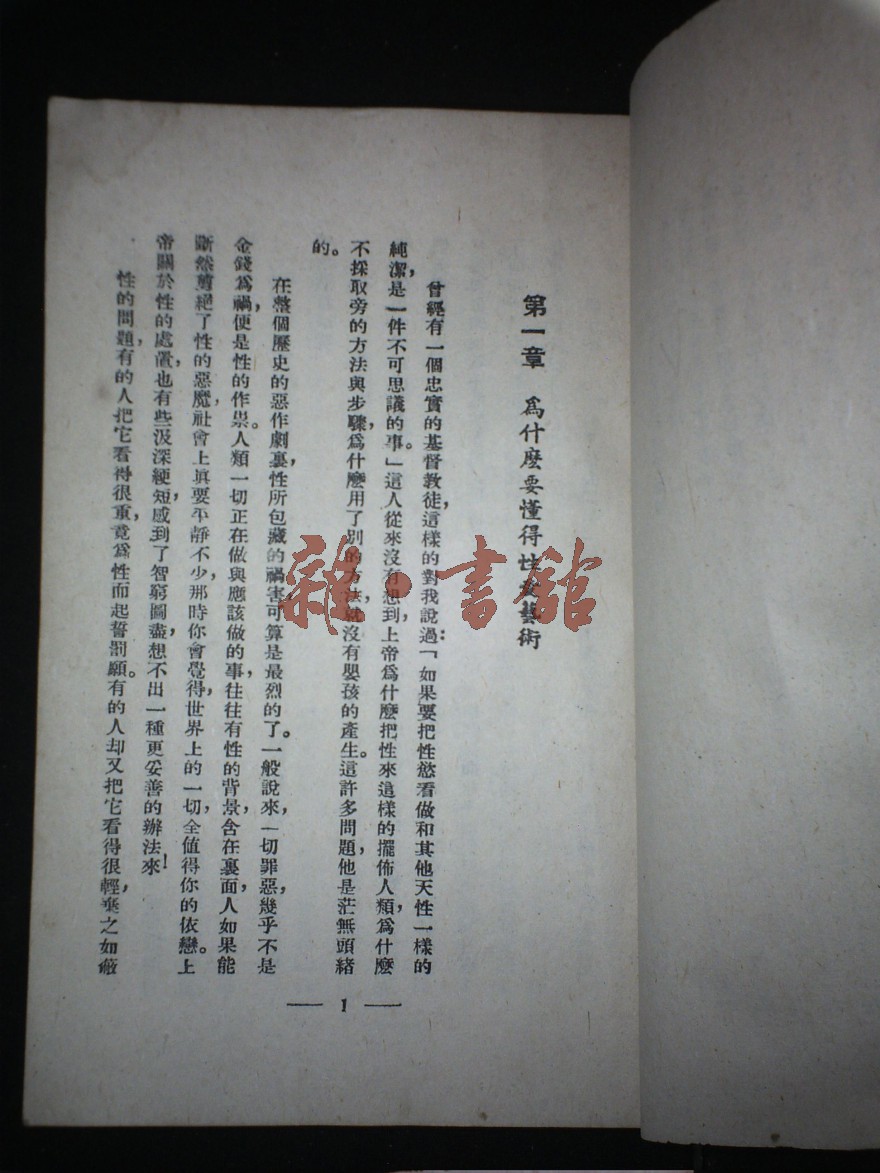 第一章　爲什麽要懂得性愛藝術
曾經有一個忠實的基督教徒，這樣的對我說過：「如果要把性慾看做和其他天性一樣的
純潔，是一件不可思議的事。」這人從來沒有想到，上帝爲什麽把性來這樣的擺佈人類，爲什麽
不採取旁的方法與步驟，爲什麽用了別的方法，就沒有嬰孩的產生。這許多問題，他是茫無頭緒
的。
在整個歷史的惡作劇裏，性所包藏的禍害，可算是最烈的了。一般說來，一切罪惡，幾乎不是
金錢爲禍，便是性的作祟。人類一切正在做與應該做的事，往往有性的背景，含在裏面，人如果能
斷然剪絕了性的惡魔，社會上真要平靜不少，那時你會覺得，世界上的一切，全值得你的依戀。上
帝關於性的處置，也有些汲深綆短，感到了智窮圖盡，想不出一種更妥善的辦法來！
性的問題，有的人把它看得很重，竟爲性而起誓罰願。有的人却又把它看得很輕，棄之如蔽
— 1 —
雜·書館